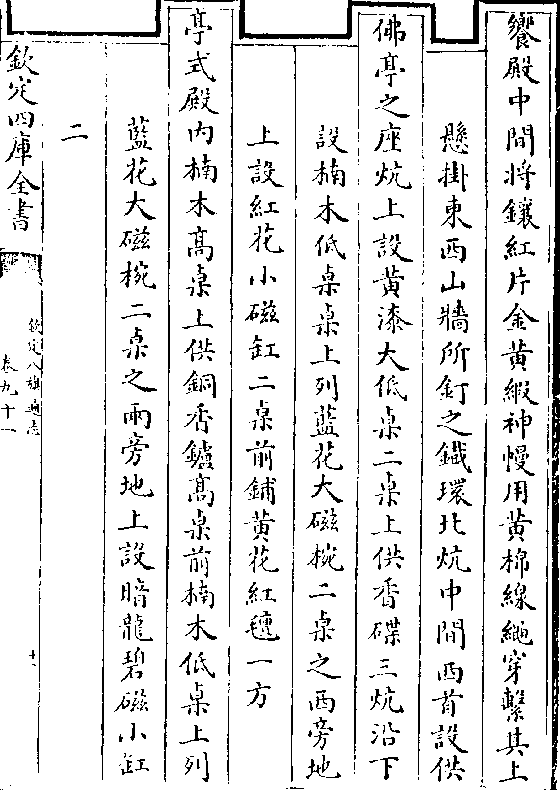 饗殿中間将鑲紅片金黄緞神幔用黄棉線䋲穿繫其上
懸掛東西山牆所釘之鐵環北炕中間西首設供
佛亭之座炕上設黄漆大低桌二桌上供香碟三炕沿下
設楠木低桌桌上列藍花大磁椀二桌之西旁地
上設紅花小磁缸二桌前鋪黄花紅氊一方
亭式殿内楠木髙桌上供銅香鑪髙桌前楠木低桌上列
藍花大磁椀二桌之兩旁地上設暗龍碧磁小缸
二
欽定四庫全書
欽定八旗通志
卷九十一
十一